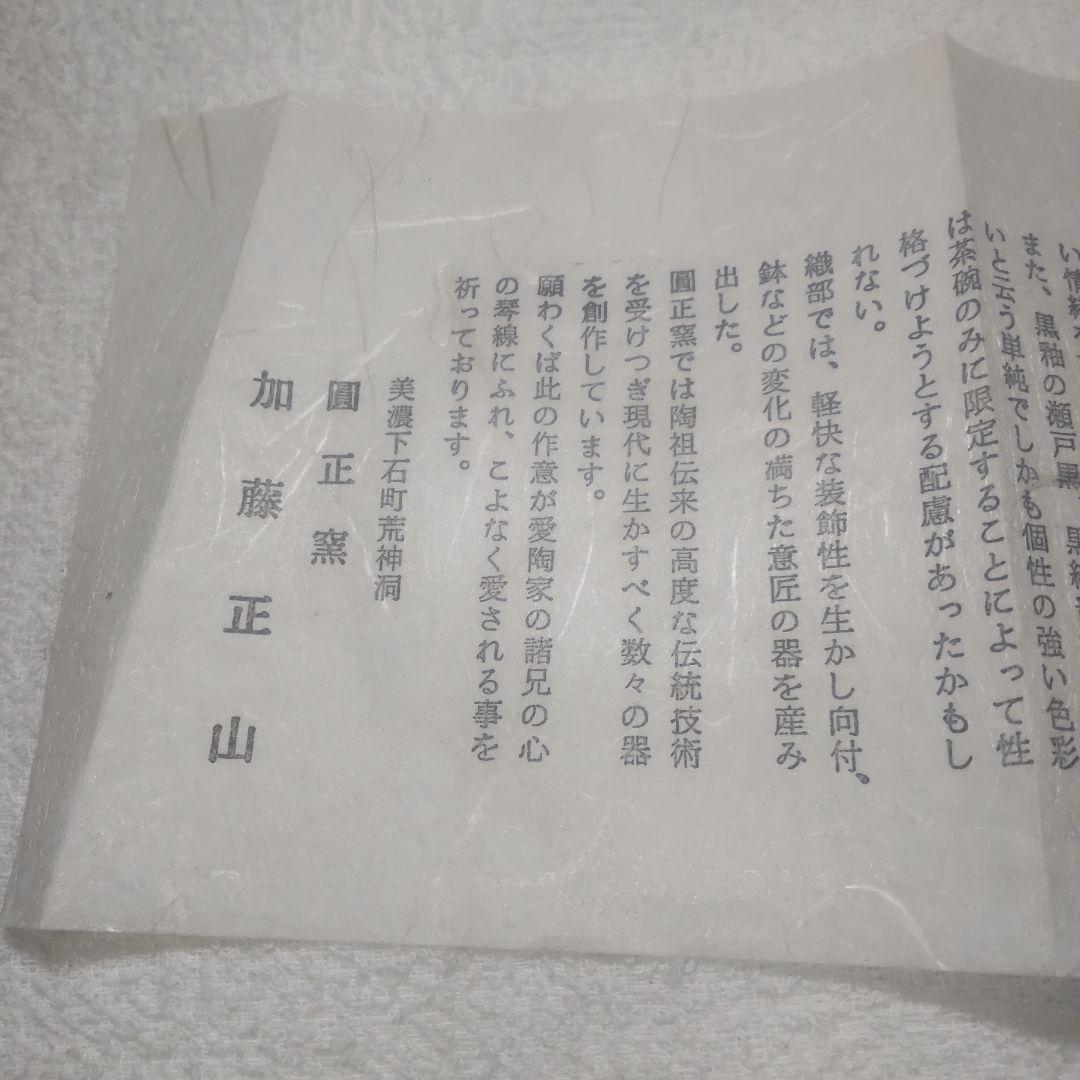 い情緒
また、黒釉の瀬戸黒
いと云う単純でしかも個性の強い色彩
は茶碗のみに限定することによって性
格づけようとする配慮があったかもし
れない。
織部では、軽快な装飾性を生かし向付。
鉢などの変化の満ちた意匠の器を産み
出した。
圓正窯では陶祖伝来の高度な伝統技術
を受けつぎ現代に生かすべく数々の器
を創作しています。
願わくば此の作意が愛陶家の諸兄の心
の琴線にふれ、こよなく愛される事を
祈っております。
美濃下石町荒神洞
圓正窯
加藤正山